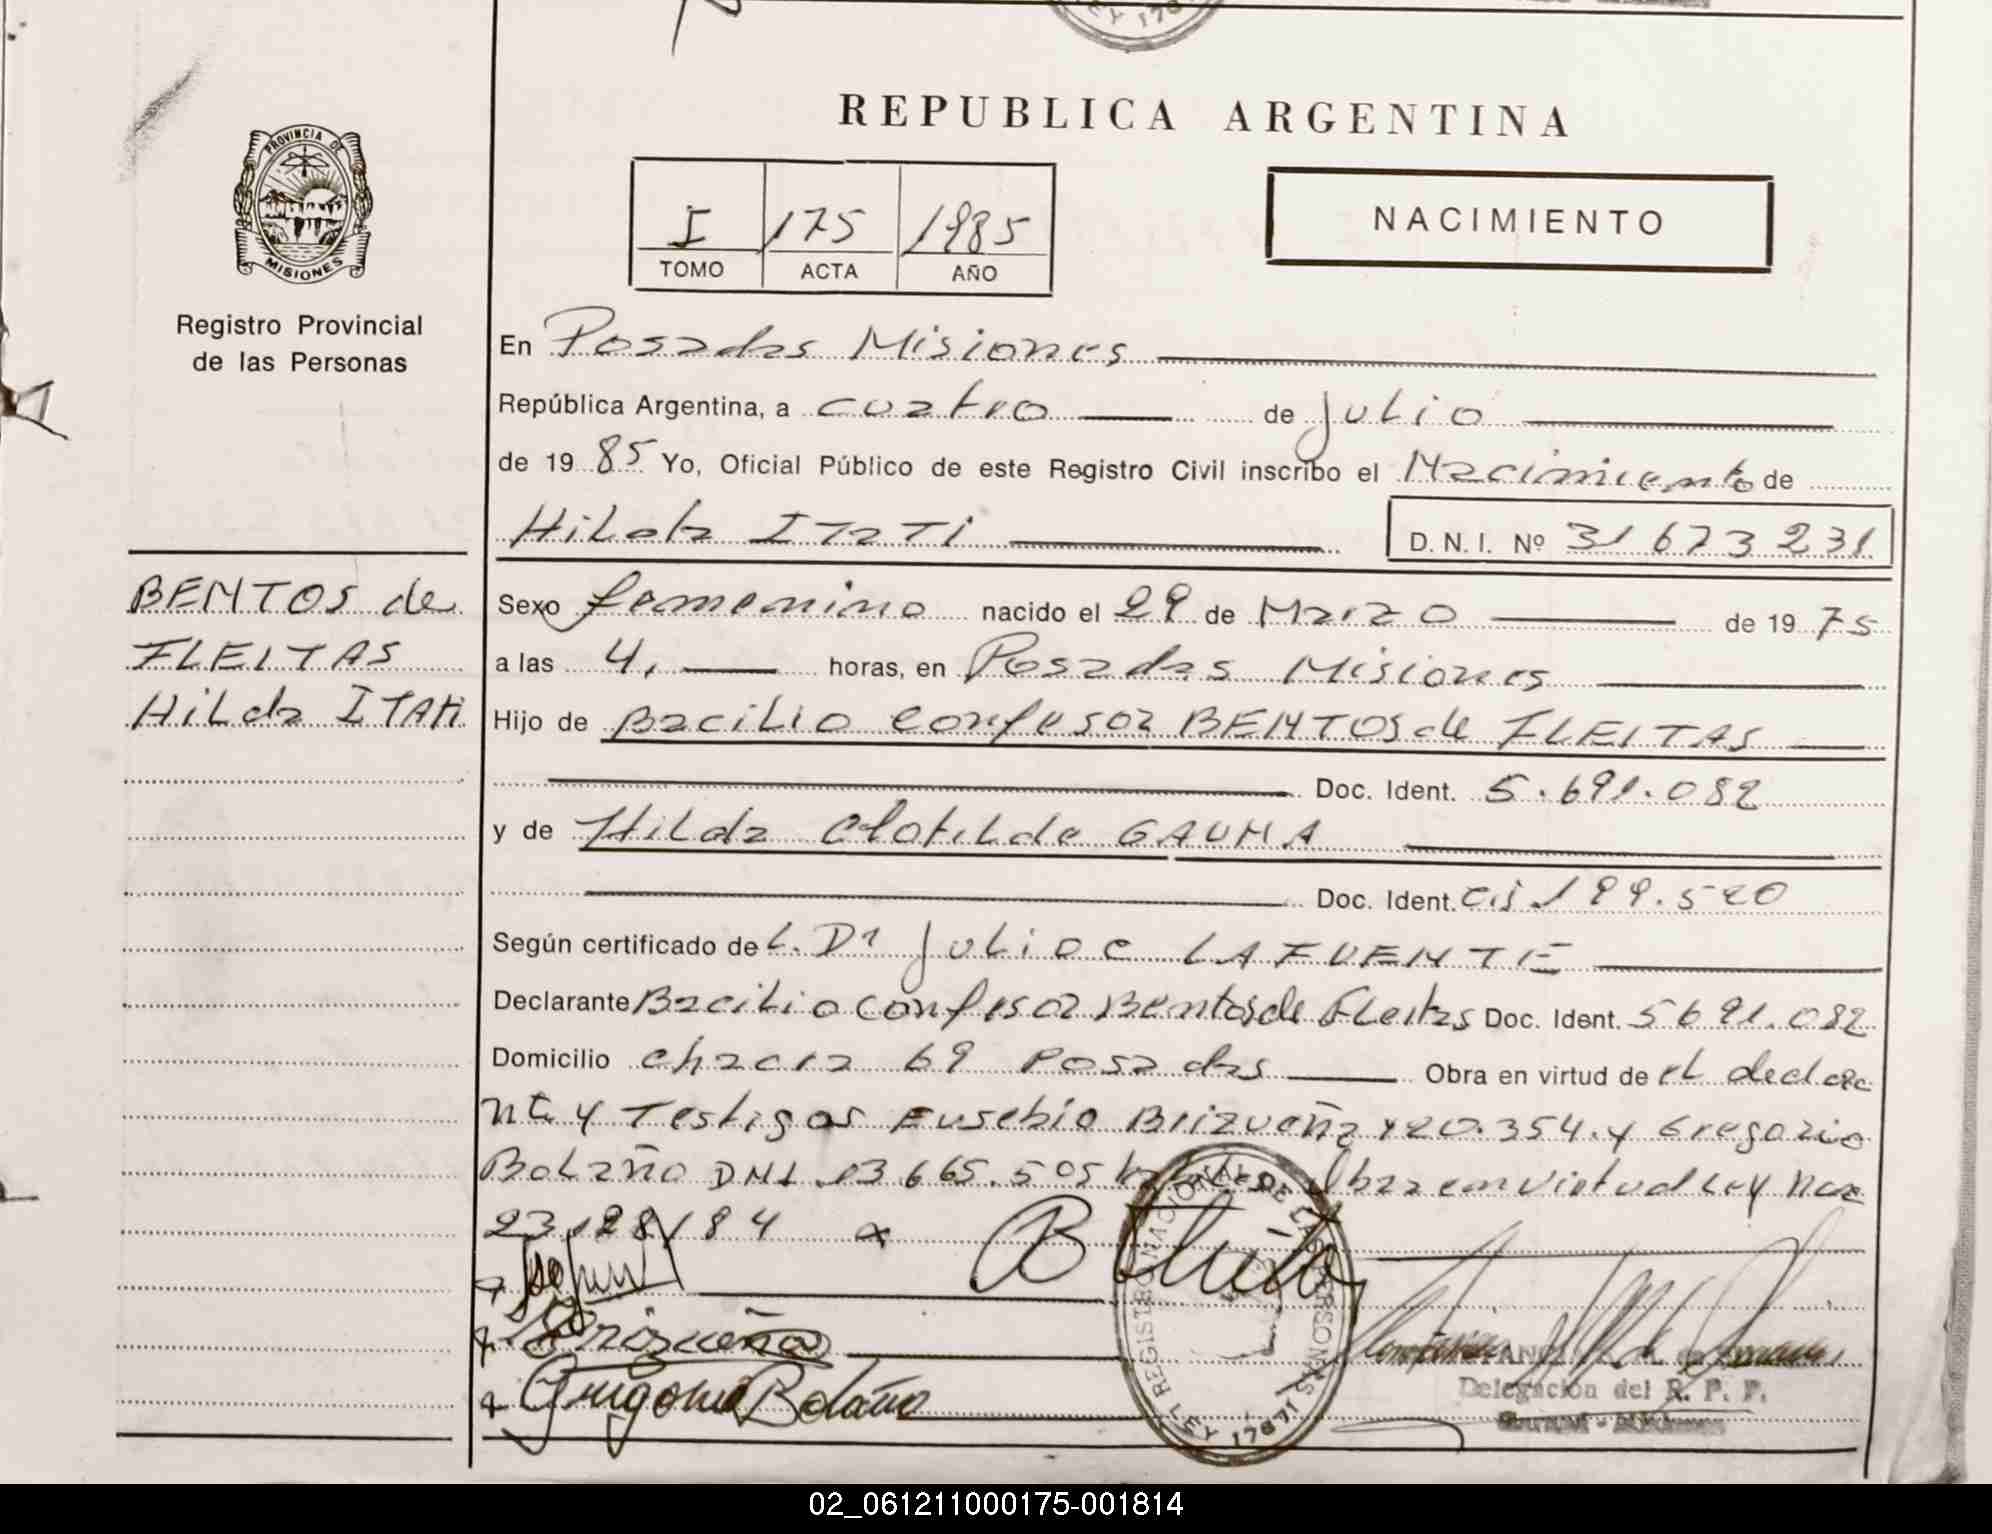 REPUBLICA ARGENTINA
PROVINCIA DE
MISIONES
Registro Provincial
de las Personas
I 175 1985
TOMO ACTA AÑO
NACIMIENTO
En Posadas Misiones
República Argentina, a cuatro de Julio
de 19 85 Yo, Oficial Público de este Registro Civil inscribo el Nacimiento de
Hilda ITATI D. N. I. Nº 31 673 231
BENTOS de
FLEITAS
Hilda ITATI
Sexo femenino nacido el 29 de Marzo de 19 75
a las 4, horas, en Posadas Misiones
Hijo de Bacilio Confesor BENTOS de FLEITAS
Doc. Ident. 5.691.082
y de Hilda Clotilde GAUNA
Doc. Ident. 199.520
Según certificado de L. Dr Julio C LAFUENTE
Declarante Bacilio Confesor Bentos de Fleitas Doc. Ident. 5691.082
Domicilio chacra 69 Posadas Obra en virtud de el declara
nte y Testigos Eusebio Brizueña 20.354. y Gregorio
Bolaño DNI. 13.665.505 Obra en virtud Ley
23.128/84
Brizueña
Gregorio Bolaño
REGISTRO NACIONAL DE LAS PERSONAS
LEY 17671
Delegación del R. P. P.
02_061211000175-001814